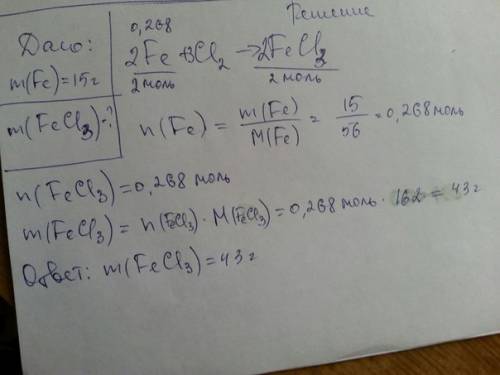 Решение
Дано:
m(Fe)=15г
m(FeCl3)-?
0,268
2Fe+3Cl2→2FeCl3
2моль 2 моль
n(Fe) = m(Fe)/M(Fe) = 15/56 = 0,268моль
n(FeCl3)=0,268 моль
m(FeCl3)= n(FeCl3)·M(FeCl3)=0,268 моль·162=43г
Ответ: m(FeCl3)=43г